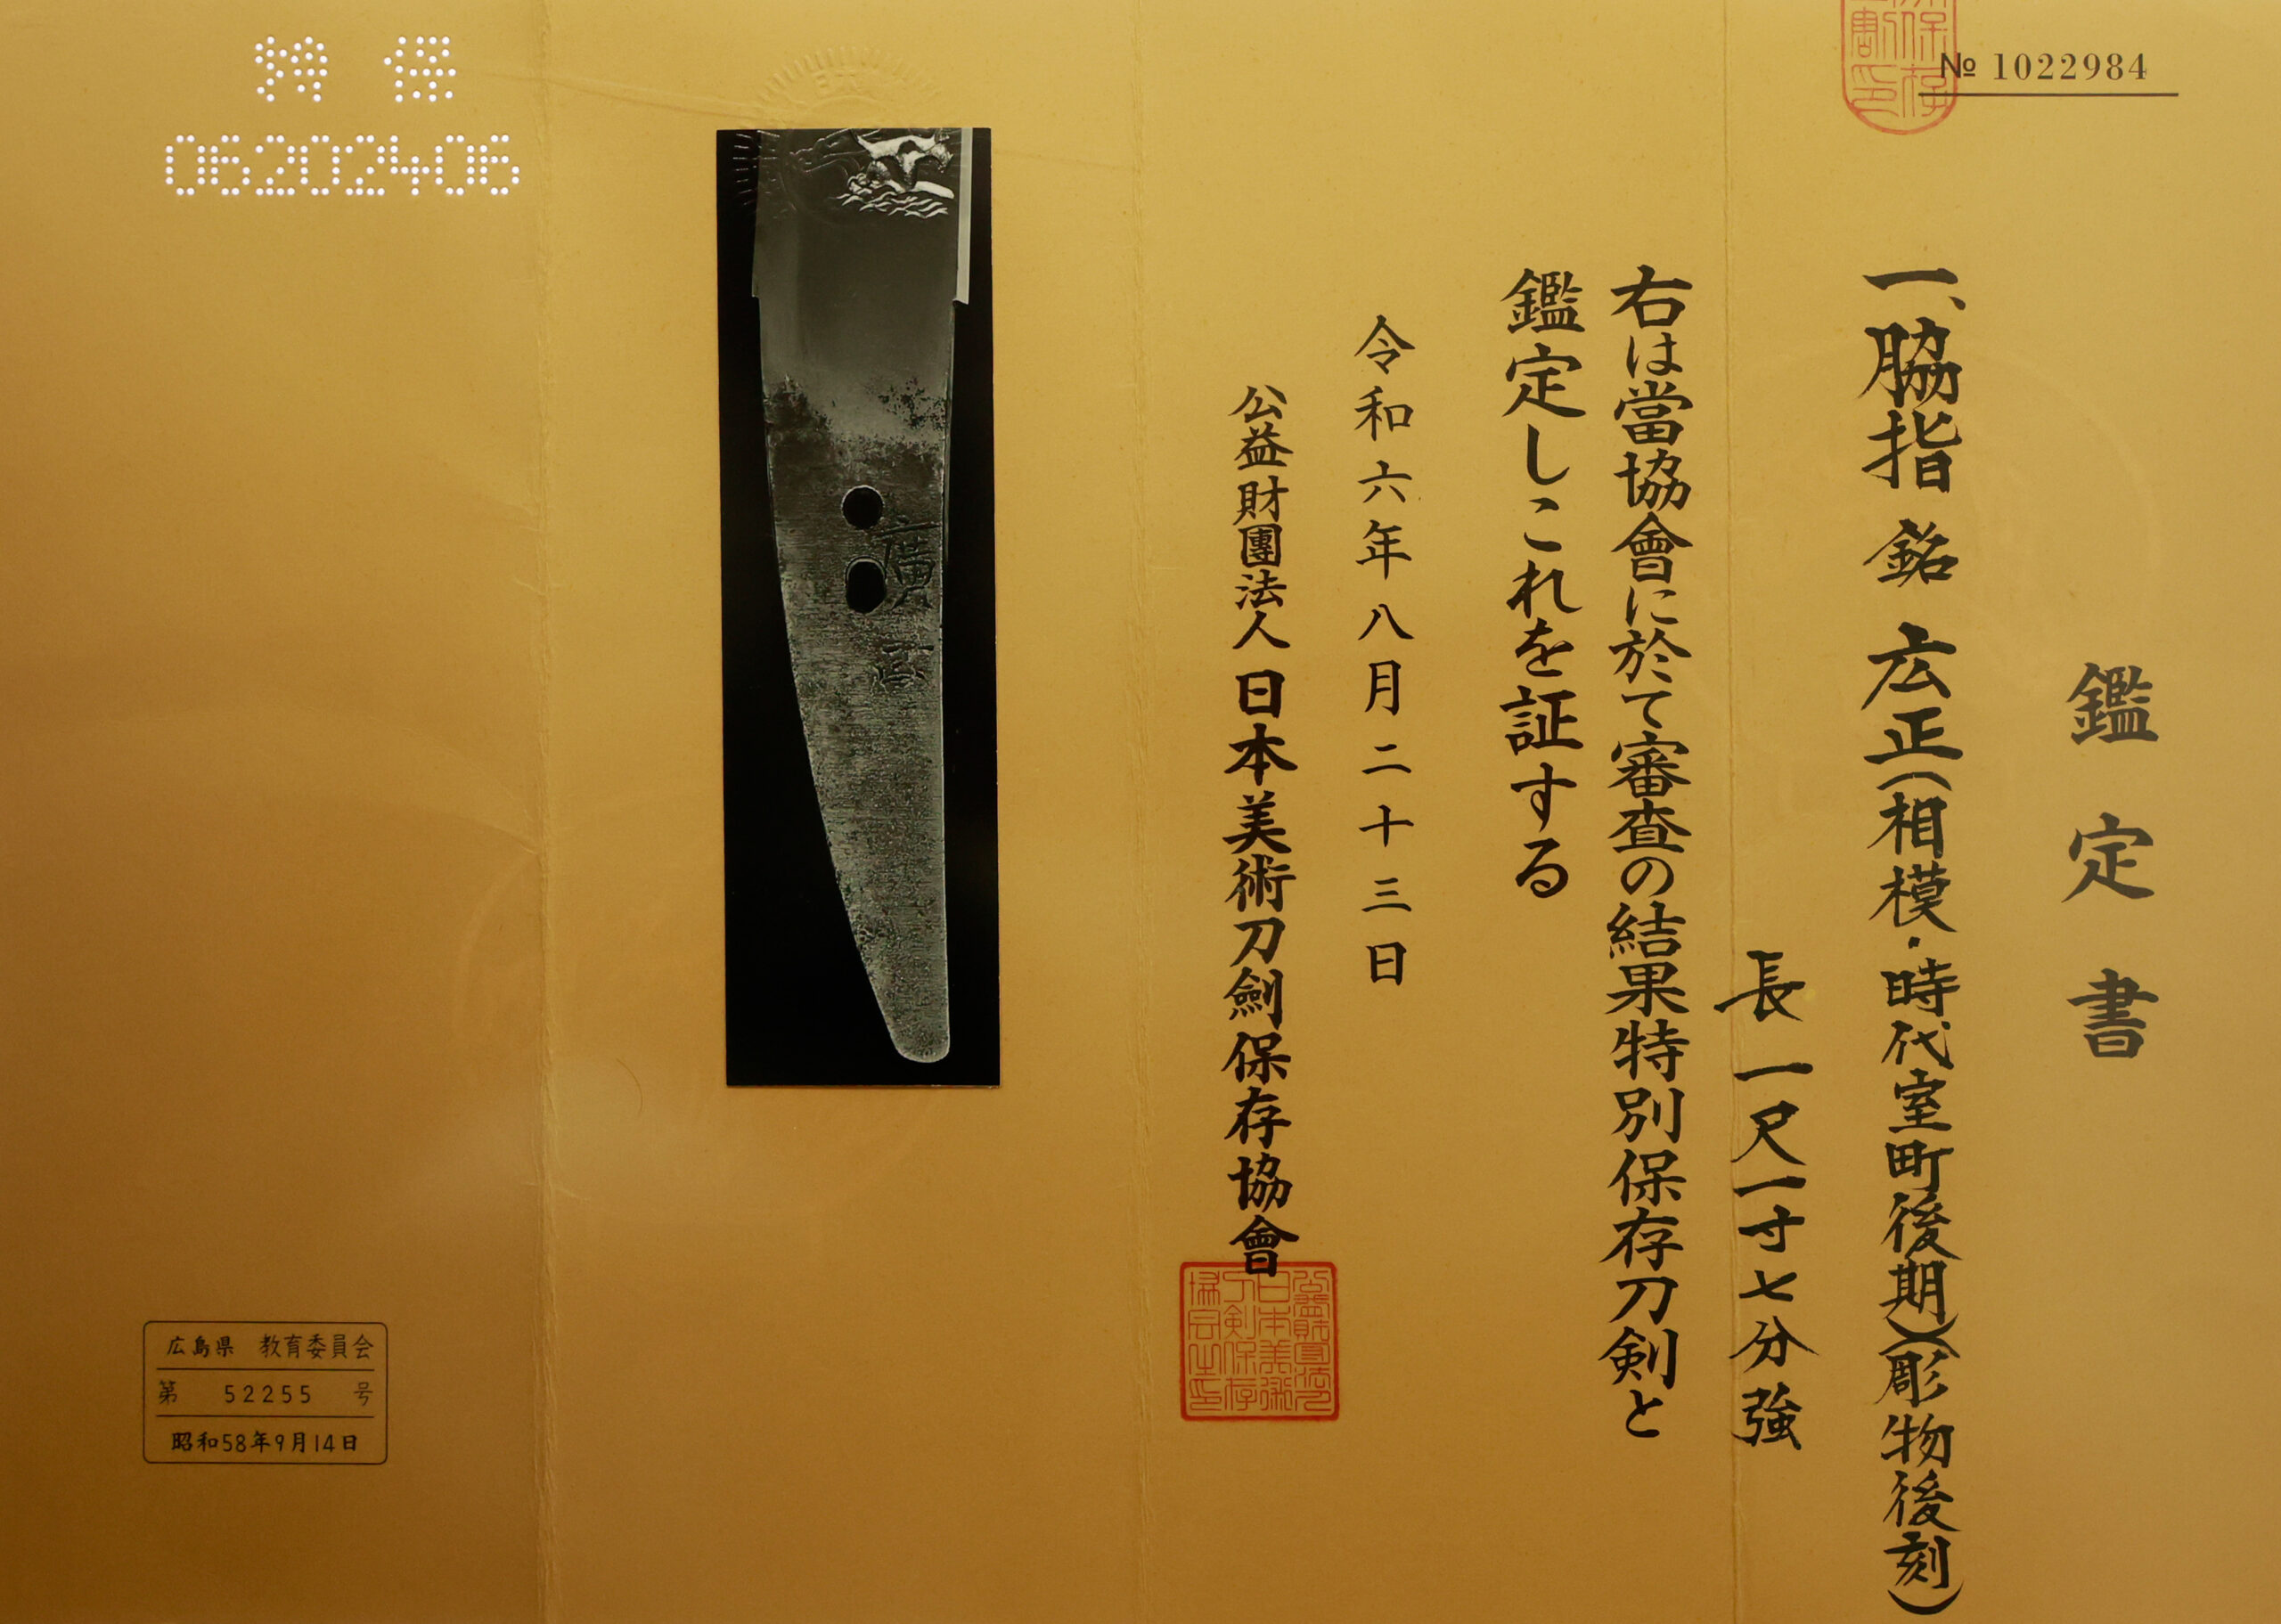 № 1022984
鑑定書
一、脇指 銘 広正(相模・時代室町後期)(彫物後刻)
長一尺一寸七分強
右は當協會に於て審査の結果特別保存刀剣と
鑑定しこれを証する
令和六年八月二十三日
公益財團法人 日本美術刀劍保存協會
廣正
特 保
06202406
広島県 教育委員会
第 52255 号
昭和58年9月14日